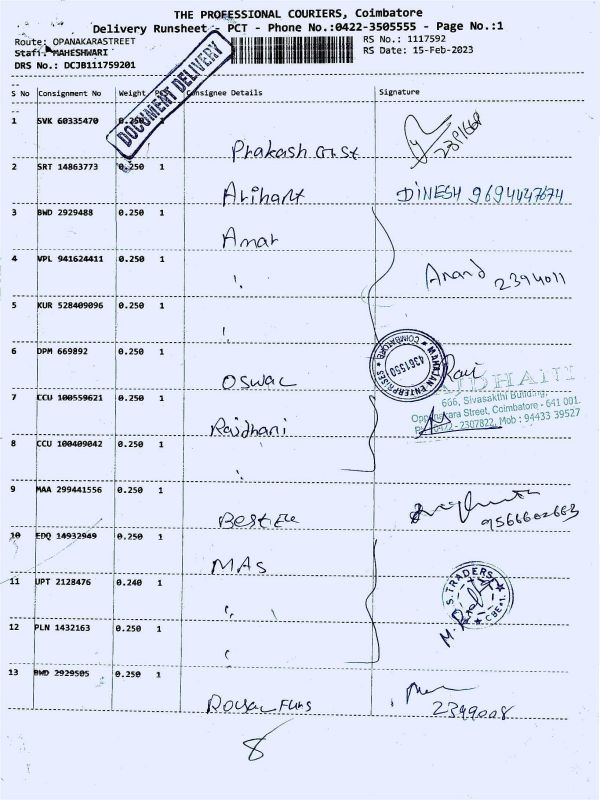 THE PROFESSIONAL COURIERS, Coimbatore
Delivery Runsheet - PCT - Phone No.:0422-3505555 - Page No.:1
Route: OPANAKARASTREET
RS No.: 1117592
Staff: MAHESHWARI
RS Date: 15-Feb-2023
DRS No.: DCJB111759201
DOCUMENT DELIVERY
S No Consignment No Weight PCS Consignee Details Signature
1 SVK 60335470 0.250 1
Prakash
2 SRT 14863773 0.250 1
Arihant DINESH 9694447674
3 BWD 2929488 0.250 1
Amar
4 VPL 941624411 0.250 1
Anand 2394011
5 KUR 528409096 0.250 1
6 DPM 669892 0.250 1
MAHAJAN ENTERPRISES * COIMBATORE *
4361550
Oswal Ravi
RAJDHANI
7 CCU 100559621 0.250 1
666, Sivasakthi Building,
Street, Coimbatore - 641 001.
0422-2307822, Mob : 94433 39527
Rajdhani
8 CCU 100409042 0.250 1
9 MAA 299441556 0.250 1
9566602663
10 EDQ 14932949 0.250 1
MAS
11 UPT 2128476 0.240 1
S. TRADERS
CBE-1.
12 PLN 1432163 0.250 1
13 BWD 2929505 0.250 1
2399008
8